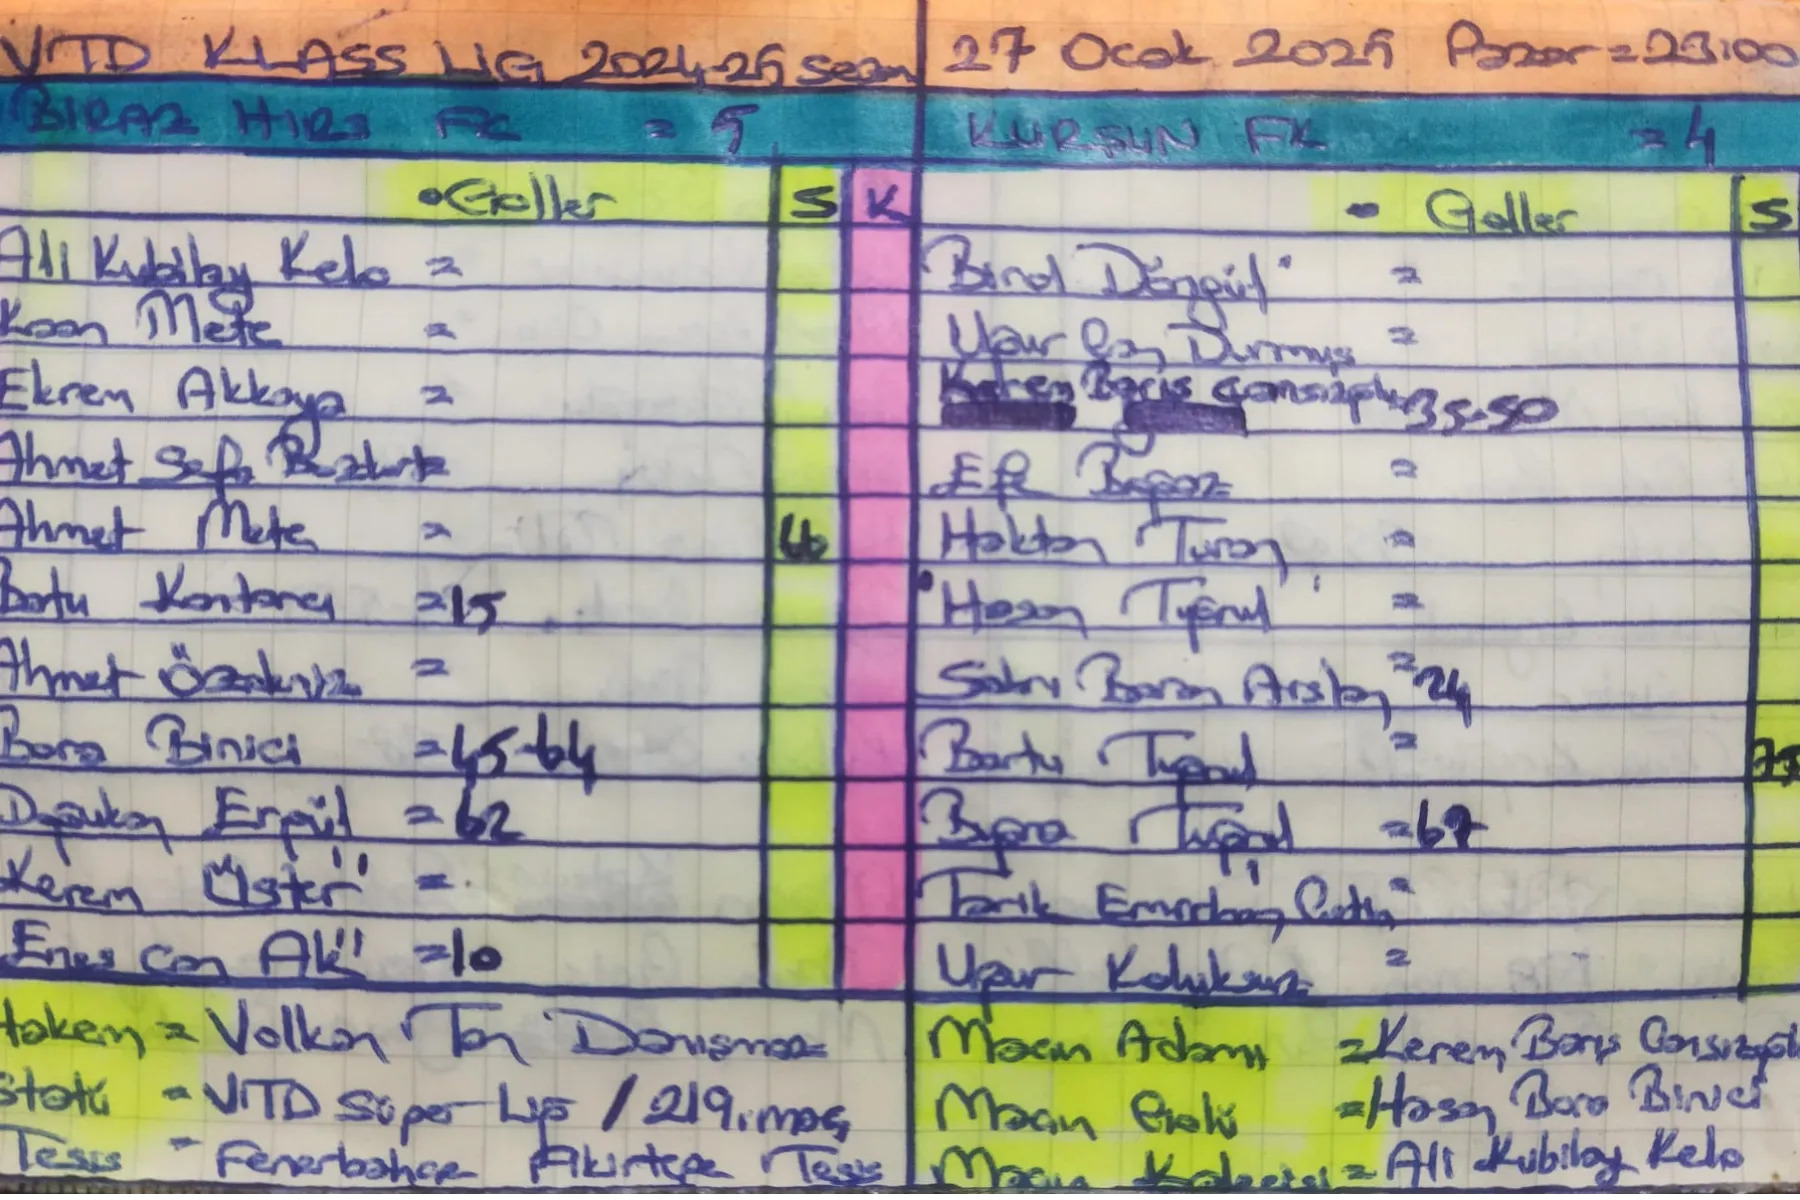 VTD KLASS LİG 2024-25 sezon
27 Ocak 2025 Pazar = 23:00
BİRAZ HIRS FC = 5
KURŞUN FK = 4
• Goller S K
• Goller S
Ali Kubilay Kelo =
Birol Döngül =
Kaan Mete =
Uğur Can Durmuş =
Ekrem Akkaya =
Kerem Barış Cansızoğlu 35-50
Ahmet Sefa Bozkurt
Efe Boğaz =
Ahmet Mete =
Haktan Turan =
Batu Kantarcı =15
• Hasan Tuğrul =
Ahmet Özdeniz =
Sabri Baran Arslan =24
Bora Binici =45-64
Bartu Tuğrul =
Doğukan Ergül =62
Buğra Tuğrul =67
Kerem Üster =
Tarık Emirhan Çetin =
Enes Can Ak =10
Uğur =
Hakem = Volkan Tan Danışmaz
Maçın Adamı =Kerem Barış Cansızoğlu
Statü = VTD Süper Lig / 219. maç
Maçın Golü =Hasan Bora Binici
Tesis = Fenerbahçe Tesis
Maçın Kalecisi = Ali Kubilay Kelo